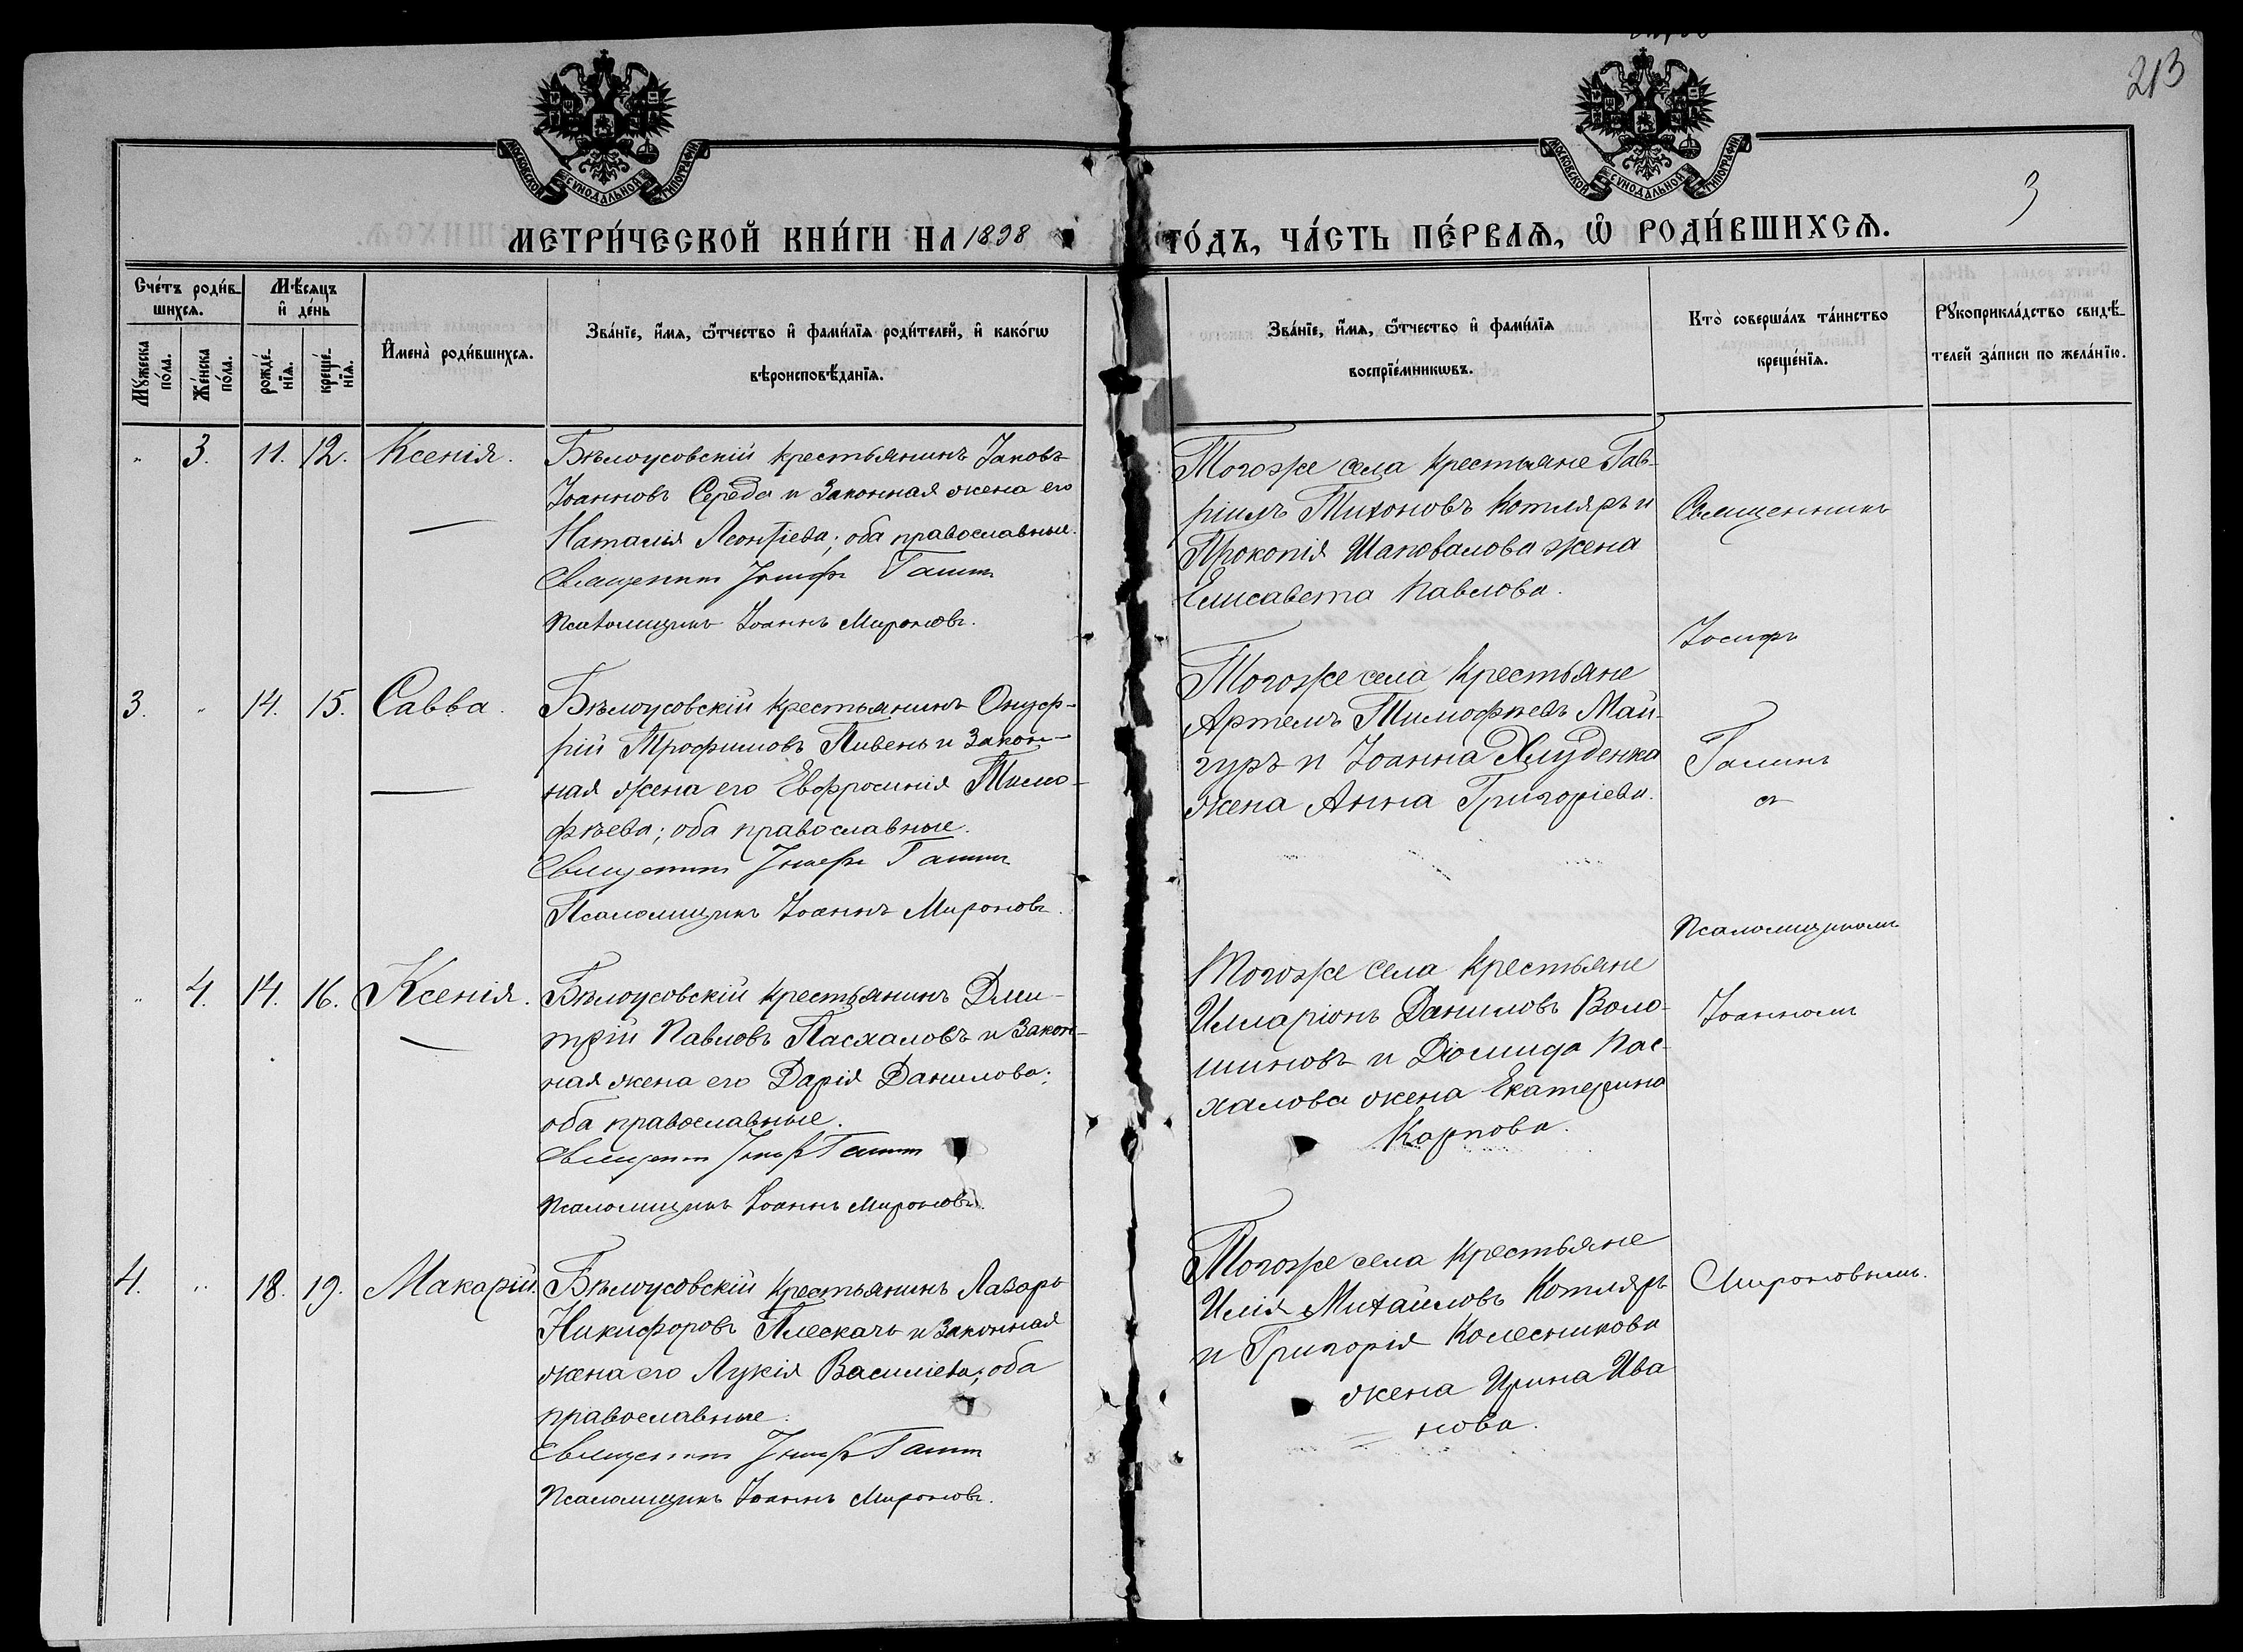 213
МОСКОВСКОЙ СѴНОДАЛЬНОЙ ТИПОГРАФІИ
МОСКОВСКОЙ СѴНОДАЛЬНОЙ ТИПОГРАФІИ
3
МЕТРИ́ЧЕСКОЙ КНИ́ГИ НА 1898 ГО́ДЪ, ЧА́СТЬ ПЕ́РВАѦ, Ѡ҆ РОДИ́ВШИХСѦ.
Сче́тъ роди́в-
шихсѧ.
Мꙋ́жеска
по́ла.
Же́нска
по́ла.
Мѣ́сѧцъ
и҆ де́нь
рожде́-
нїѧ.
креще́-
нїѧ.
И҆мена̀ роди́вшихсѧ.
Зва́нїе, и҆́мѧ, ѻ҆́тчество и҆ фами́лїѧ роди́телей, и҆ како́гѡ
вѣроисповѣ́данїѧ.
Зва́нїе, и҆́мѧ, ѻ҆́тчество и҆ фами́лїѧ
воспрїе́мникѡвъ.
Кто̀ соверша́лъ та́инство
креще́нїѧ.
Рꙋкоприкла́дство свидѣ́-
телей за́писи по жела́нїю.
" 3. 11. 12. Ксенія.
Бѣлоусовскій крестьянинъ Іаковъ
Іоанновъ Середа и законная жена его
Наталія Леонтіева; оба православные.
Священникъ Іосифъ Галинъ
Псаломщикъ Іоаннъ Мироновъ.
Тогоже села крестьяне Гав-
ріилъ Тихоновъ Котляръ и
Прокопія Шаповалова жена
Елисавета Павлова.
Священникъ
Іосифъ
3. " 14. 15. Савва.
Бѣлоусовскій крестьянинъ Онуф-
рій Трофимовъ Пивень и закон-
ная жена его Евфросинія Тимо-
фѣева; оба православные.
Священникъ Іосифъ Галинъ
Псаломщикъ Іоаннъ Мироновъ.
Тогоже села крестьяне
Артемъ Тимофѣевъ Май-
гуръ и Іоанна Хлуденка
жена Анна Григоріева.
Галинъ
съ
Псаломщикомъ
" 4. 14. 16. Ксенія.
Бѣлоусовскій крестьянинъ Дми-
трій Павловъ Пасхаловъ и закон-
ная жена его Дарія Данилова;
оба православные.
Священникъ Іосифъ Галинъ
Псаломщикъ Іоаннъ Мироновъ.
Тогоже села крестьяне
Илларіонъ Даниловъ Воло-
шиновъ и Діомида Пас-
халова жена Екатерина
Карпова.
Іоанномъ
4. " 18. 19. Макарій.
Бѣлоусовскій крестьянинъ Лазарь
Никифоровъ Плескачъ и законная
жена его Лукія Василіева; оба
православные.
Священникъ Іосифъ Галинъ
Псаломщикъ Іоаннъ Мироновъ.
Тогоже села крестьяне
Илія Михайловъ Котляръ
и Григорія Колесникова
жена Ирина Ива
нова.
Мироновымъ.